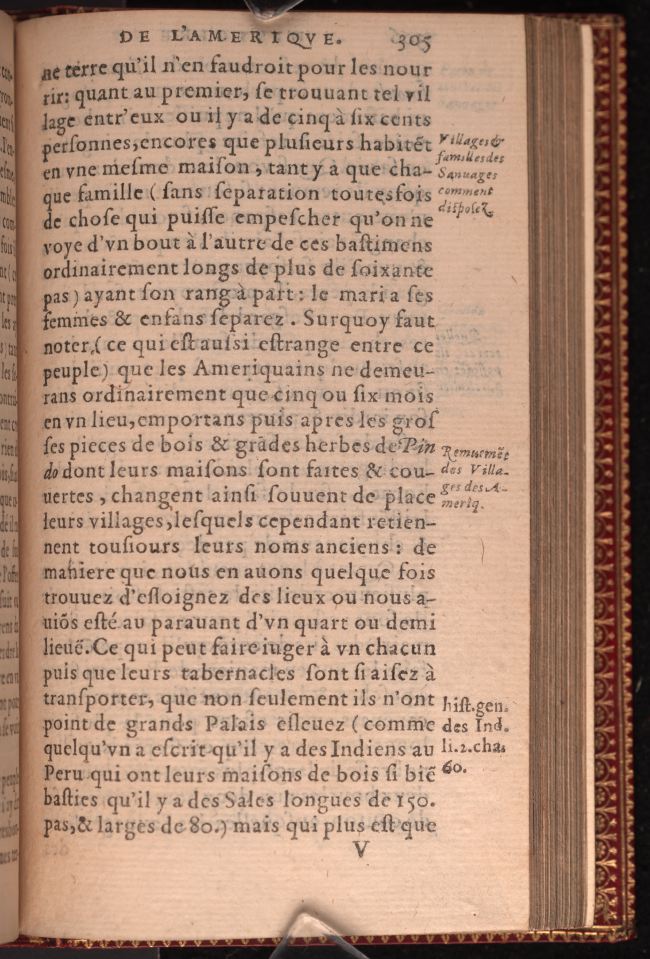 DE L'AMERIQVE. 305
ne terre qu'il n'en faudroit pour les nour
rir: quant au premier, ſe trouuant tel vil
lage entr'eux ou il y a de cinq à ſix cents
perſonnes, encores que pluſieurs habitẽt
en vne meſme maiſon, tant y a que cha-
que famille (ſans ſeparation toutesfois
de choſe qui puiſſe empeſcher qu'on ne
voye d'vn bout à l'autre de ces baſtimens
ordinairement longs de plus de ſoixante
pas) ayant ſon rang à part: le mari a ſes
femmes & enfans ſeparez. Surquoy faut
noter, (ce qui eſt auſsi eſtrange entre ce
peuple) que les Ameriquains ne demeu-
rans ordinairement que cinq ou ſix mois
en vn lieu, emportans puis apres les groſ
ſes pieces de bois & grãdes herbes de Pin
do dont leurs maiſons ſont faites & cou-
uertes, changent ainſi ſouuent de place
leurs villages, leſquels cependant retien-
nent touſiours leurs noms anciens: de
maniere que nous en auons quelque fois
trouuez d'eſloignez des lieux ou nous a-
uiõs eſté au parauant d'vn quart ou demi
lieuë. Ce qui peut faire iuger à vn chacun
puis que leurs tabernacles ſont ſi aiſez à
tranſporter, que non ſeulement ils n'ont
point de grands Palais eſleuez (comme
quelqu'vn a eſcrit qu'il y a des Indiens au
Peru qui ont leurs maiſons de bois ſi biẽ
baſties qu'il y a des Sales longues de 150.
pas, & larges de 80.) mais qui plus eſt que
V
Villages &
familles des
Sauuages
comment
diſpoſez.
Remuemẽt
des Villa-
ges des A-
meriq.
hiſt. gen.
des Ind.
li. 2. cha.
60.